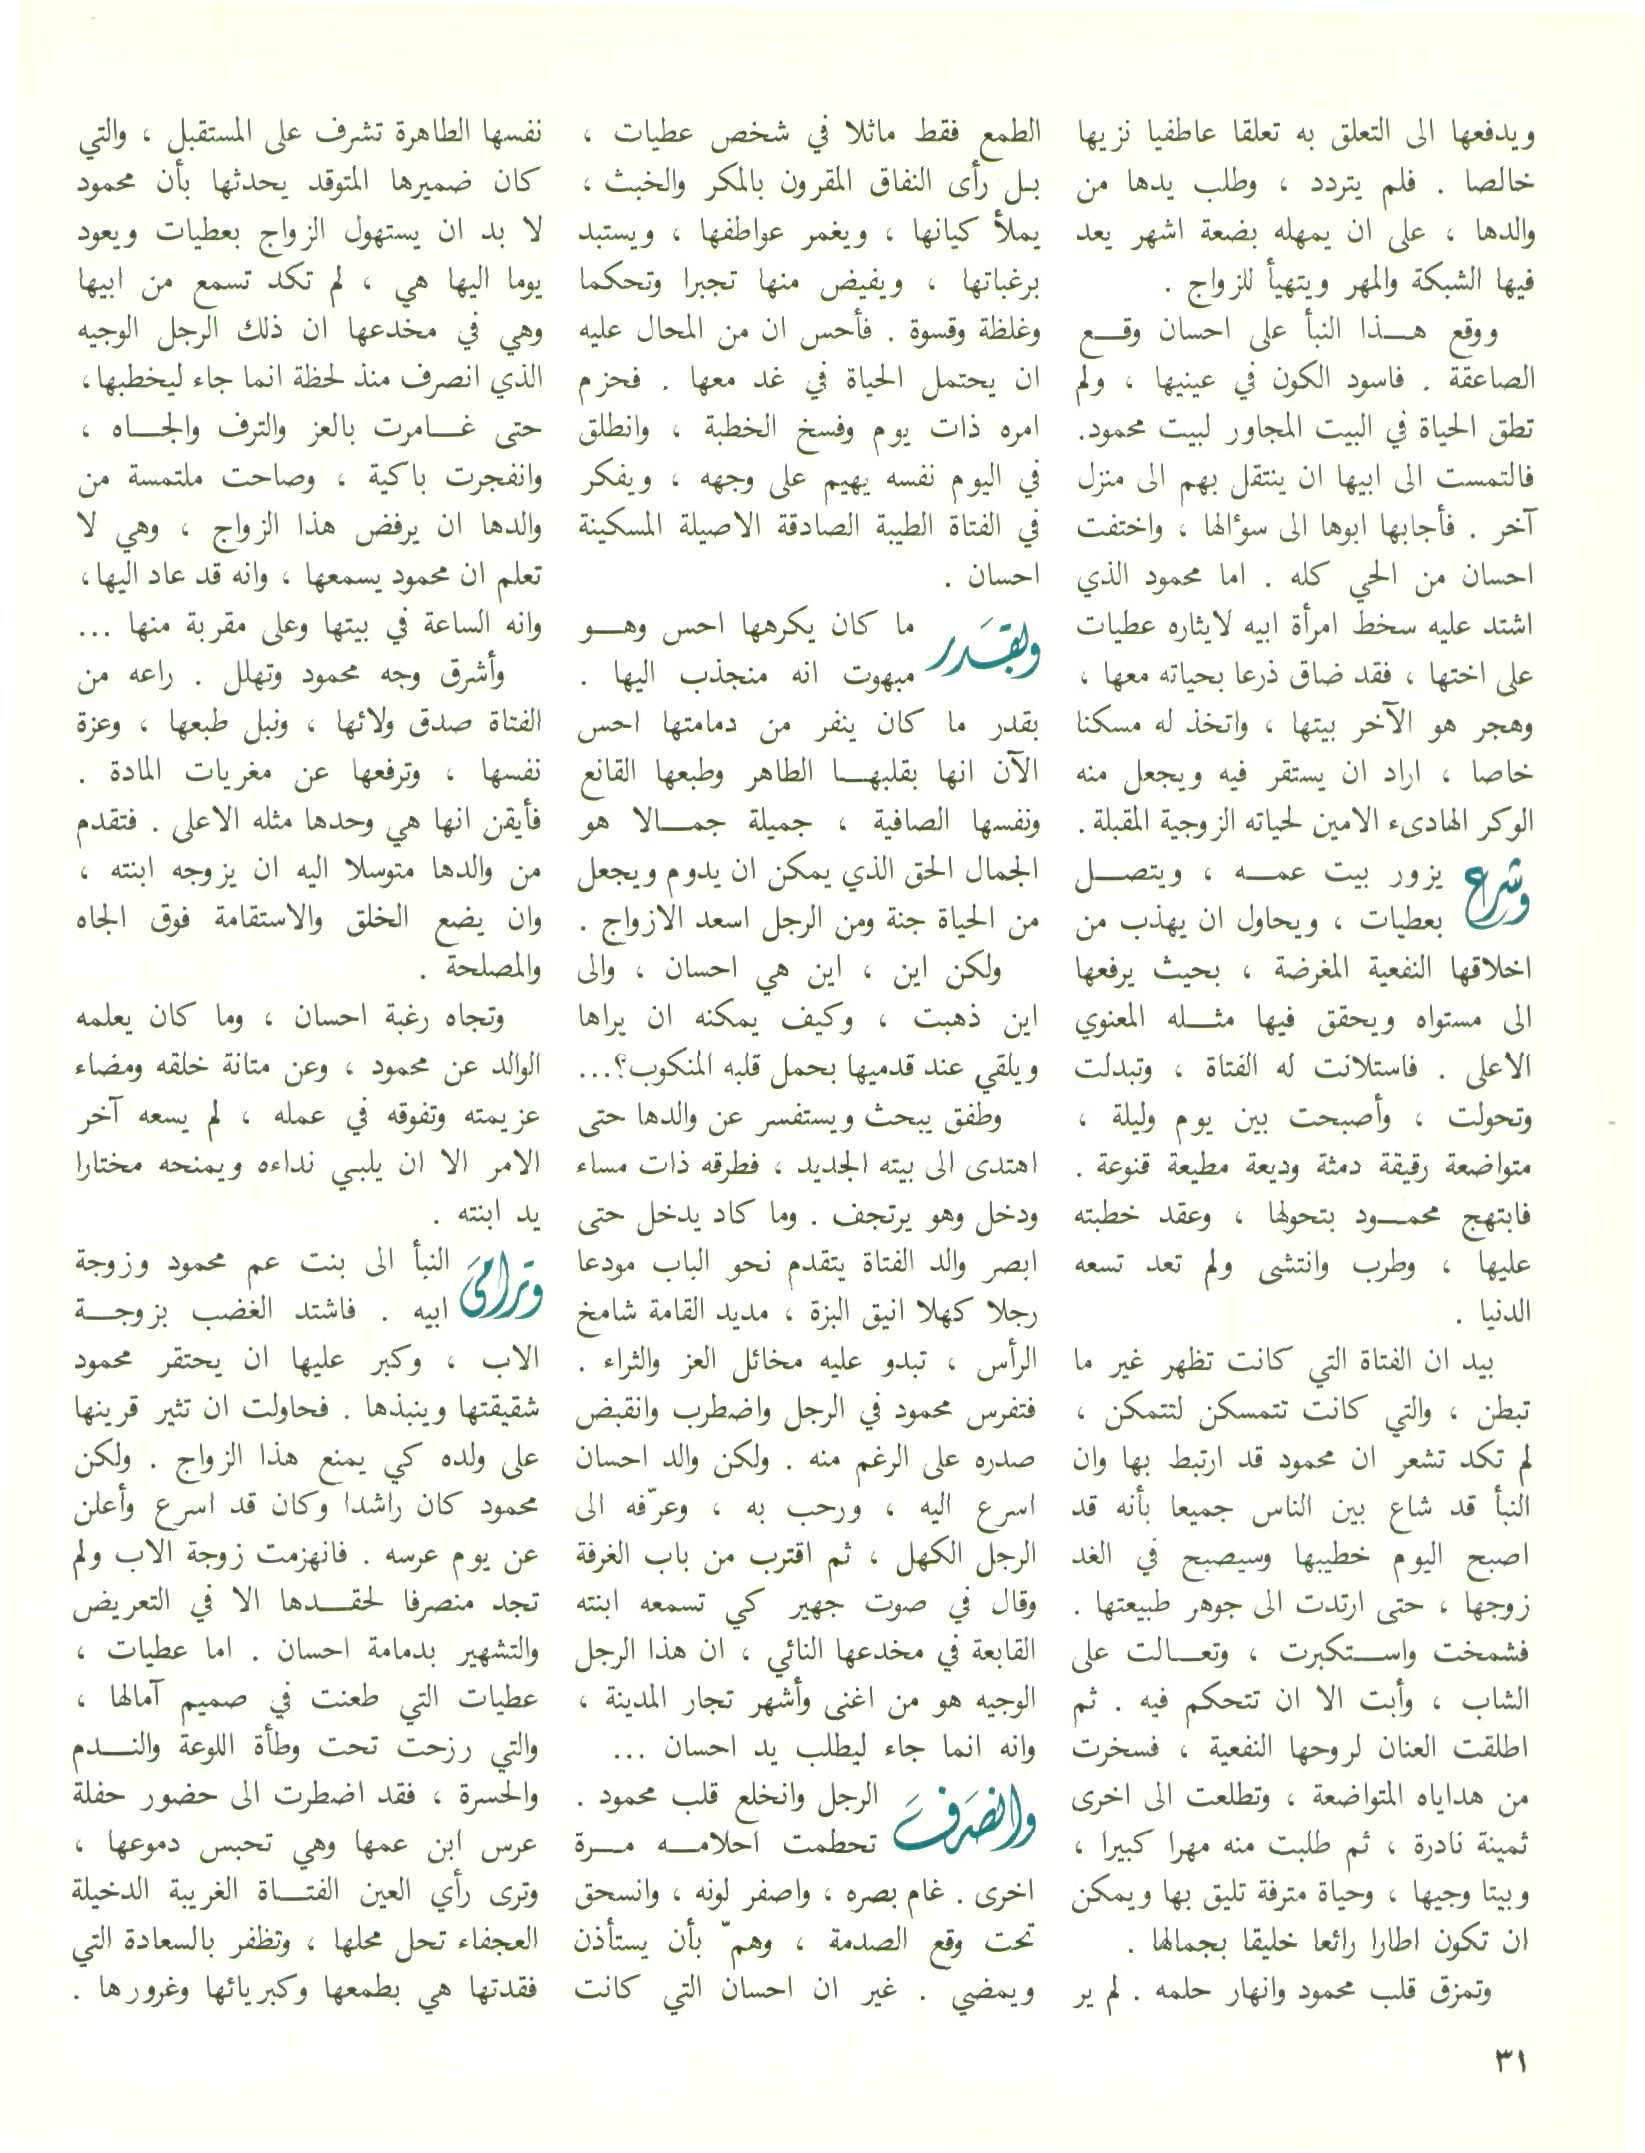 ويدفعها الى التعلق به تعلقا عاطفيا نزيها
خالصا . فلم يتردد ، وطلب يدها من
والدها ، على ان يمهله بضعة اشهر يعد
فيها الشبكة والمهر ويتهيأ للزواج .
ووقع هذا النبأ على احسان وقع
الصاعقة . فاسود الكون في عينيها ، ولم
تطق الحياة في البيت المجاور لبيت محمود.
فالتمست الى ابيها ان ينتقل بهم الى منزل
آخر . فأجابها ابوها الى سؤالها ، واختفت
احسان من الحي كله . اما محمود الذي
اشتد عليه سخط امرأة ابيه لايثاره عطيات
على اختها ، فقد ضاق ذرعا بحياته معها ،
وهجر هو الآخر بيتها ، واتخذ له مسكنا
خاصا ، اراد ان يستقر فيه ويجعل منه
الوكر الهادىء الامين لحياته الزوجية المقبلة .
وشرع يزور بيت عمه ، ويتصل
بعطيات ، ويحاول ان يهذب من
اخلاقها النفعية المغرضة ، بحيث يرفعها
الى مستواه ويحقق فيها مثله المعنوي
الاعلى . فاستلانت له الفتاة ، وتبدلت
وتحولت ، وأصبحت بين يوم وليلة ،
متواضعة رقيقة دمثة وديعة مطيعة قنوعة .
فابتهج محمود بتحولها ، وعقد خطبته
عليها ، وطرب وانتشى ولم تعد تسعه
الدنيا .
بيد ان الفتاة التي كانت تظهر غير ما
تبطن ، والتي كانت تتمسكن لتتمكن ،
لم تكد تشعر ان محمود قد ارتبط بها وان
النبأ قد شاع بين الناس جميعا بأنه قد
اصبح اليوم خطيبها وسيصبح في الغد
زوجها ، حتى ارتدت الى جوهر طبيعتها .
فشمخت واستكبرت ، وتعالت على
الشاب ، وأبت الا ان تتحكم فيه . ثم
اطلقت العنان لروحها النفعية ، فسخرت
من هداياه المتواضعة ، وتطلعت الى اخرى
ثمينة نادرة ، ثم طلبت منه مهرا كبيرا ،
وبيتا وجيها ، وحياة مترفة تليق بها ويمكن
ان تكون اطارا رائعا خليقا بجمالها .
وتمزق قلب محمود وانهار حلمه . لم ير
الطمع فقط ماثلا في شخص عطيات ،
بل رأى النفاق المقرون بالمكر والخبث ،
يملأ كيانها ، ويغمر عواطفها ، ويستبد
برغباتها ، ويفيض منها تجبرا وتحكما
وغلظة وقسوة . فأحس ان من المحال عليه
ان يحتمل الحياة في غد معها . فحزم
امره ذات يوم وفسخ الخطبة ، وانطلق
في اليوم نفسه يهيم على وجهه ، ويفكر
في الفتاة الطيبة الصادقة الاصيلة المسكينة
احسان .
وبقدر ما كان يكرهها احس وهو
مبهوت انه منجذب اليها .
بقدر ما كان ينفر من دمامتها احس
الآن انها بقلبها الطاهر وطبعها القانع
ونفسها الصافية ، جميلة جمالا هو
الجمال الحق الذي يمكن ان يدوم ويجعل
من الحياة جنة ومن الرجل اسعد الازواج .
ولكن اين ، اين هي احسان ، والى
اين ذهبت ، وكيف يمكنه ان يراها
ويلقي عند قدميها بحمل قلبه المنكوب؟...
وطفق يبحث ويستفسر عن والدها حتى
اهتدى الى بيته الجديد ، فطرقه ذات مساء
ودخل وهو يرتجف . وما كاد يدخل حتى
ابصر والد الفتاة يتقدم نحو الباب مودعا
رجلا كهلا انيق البزة ، مديد القامة شامخ
الرأس ، تبدو عليه مخائل العز والثراء .
فتفرس محمود في الرجل واضطرب وانقبض
صدره على الرغم منه . ولكن والد احسان
اسرع اليه ، ورحب به ، وعرّفه الى
الرجل الكهل ، ثم اقترب من باب الغرفة
وقال في صوت جهير كي تسمعه ابنته
القابعة في مخدعها النائي ، ان هذا الرجل
الوجيه هو من اغنى وأشهر تجار المدينة ،
وانه انما جاء ليطلب يد احسان ...
وانصَرفَ الرجل وانخلع قلب محمود .
تحطمت احلامه مرة
اخرى . غام بصره ، واصفر لونه ، وانسحق
تحت وقع الصدمة ، وهمّ بأن يستأذن
ويمضي . غير ان احسان التي كانت
نفسها الطاهرة تشرف على المستقبل ، والتي
كان ضميرها المتوقد يحدثها بأن محمود
لا بد ان يستهول الزواج بعطيات ويعود
يوما اليها هي ، لم تكد تسمع من ابيها
وهي في مخدعها ان ذلك الرجل الوجيه
الذي انصرف منذ لحظة انما جاء ليخطبها،
حتى غامرت بالعز والترف والجاه ،
وانفجرت باكية ، وصاحت ملتمسة من
والدها ان يرفض هذا الزواج ، وهي لا
تعلم ان محمود يسمعها ، وانه قد عاد اليها،
وانه الساعة في بيتها وعلى مقربة منها ...
وأشرق وجه محمود وتهلل . راعه من
الفتاة صدق ولائها ، ونبل طبعها ، وعزة
نفسها ، وترفعها عن مغريات المادة .
فأيقن انها هي وحدها مثله الاعلى . فتقدم
من والدها متوسلا اليه ان يزوجه ابنته ،
وان يضع الخلق والاستقامة فوق الجاه
والمصلحة .
وتجاه رغبة احسان ، وما كان يعلمه
الوالد عن محمود ، وعن متانة خلقه ومضاء
عزيمته وتفوقه في عمله ، لم يسعه آخر
الامر الا ان يلبي نداءه ويمنحه مختارا
يد ابنته .
وترامىَ النبأ الى بنت عم محمود وزوجة
ابيه . فاشتد الغضب بزوجة
الاب ، وكبر عليها ان يحتقر محمود
شقيقتها وينبذها . فحاولت ان تثير قرينها
على ولده كي يمنع هذا الزواج . ولكن
محمود كان راشدا وكان قد اسرع وأعلن
عن يوم عرسه . فانهزمت زوجة الاب ولم
تجد منصرفا لحقدها الا في التعريض
والتشهير بدمامة احسان . اما عطيات ،
عطيات التي طعنت في صميم آمالها ،
والتي رزحت تحت وطأة اللوعة والندم
والحسرة ، فقد اضطرت الى حضور حفلة
عرس ابن عمها وهي تحبس دموعها ،
وترى رأي العين الفتاة الغريبة الدخيلة
العجفاء تحل محلها ، وتظفر بالسعادة التي
فقدتها هي بطمعها وكبريائها وغرورها .
٣١